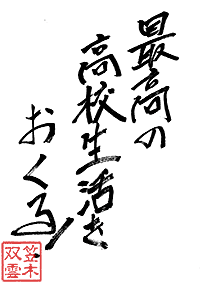 最高の
高校生活を
おくる!
笠木
双雲